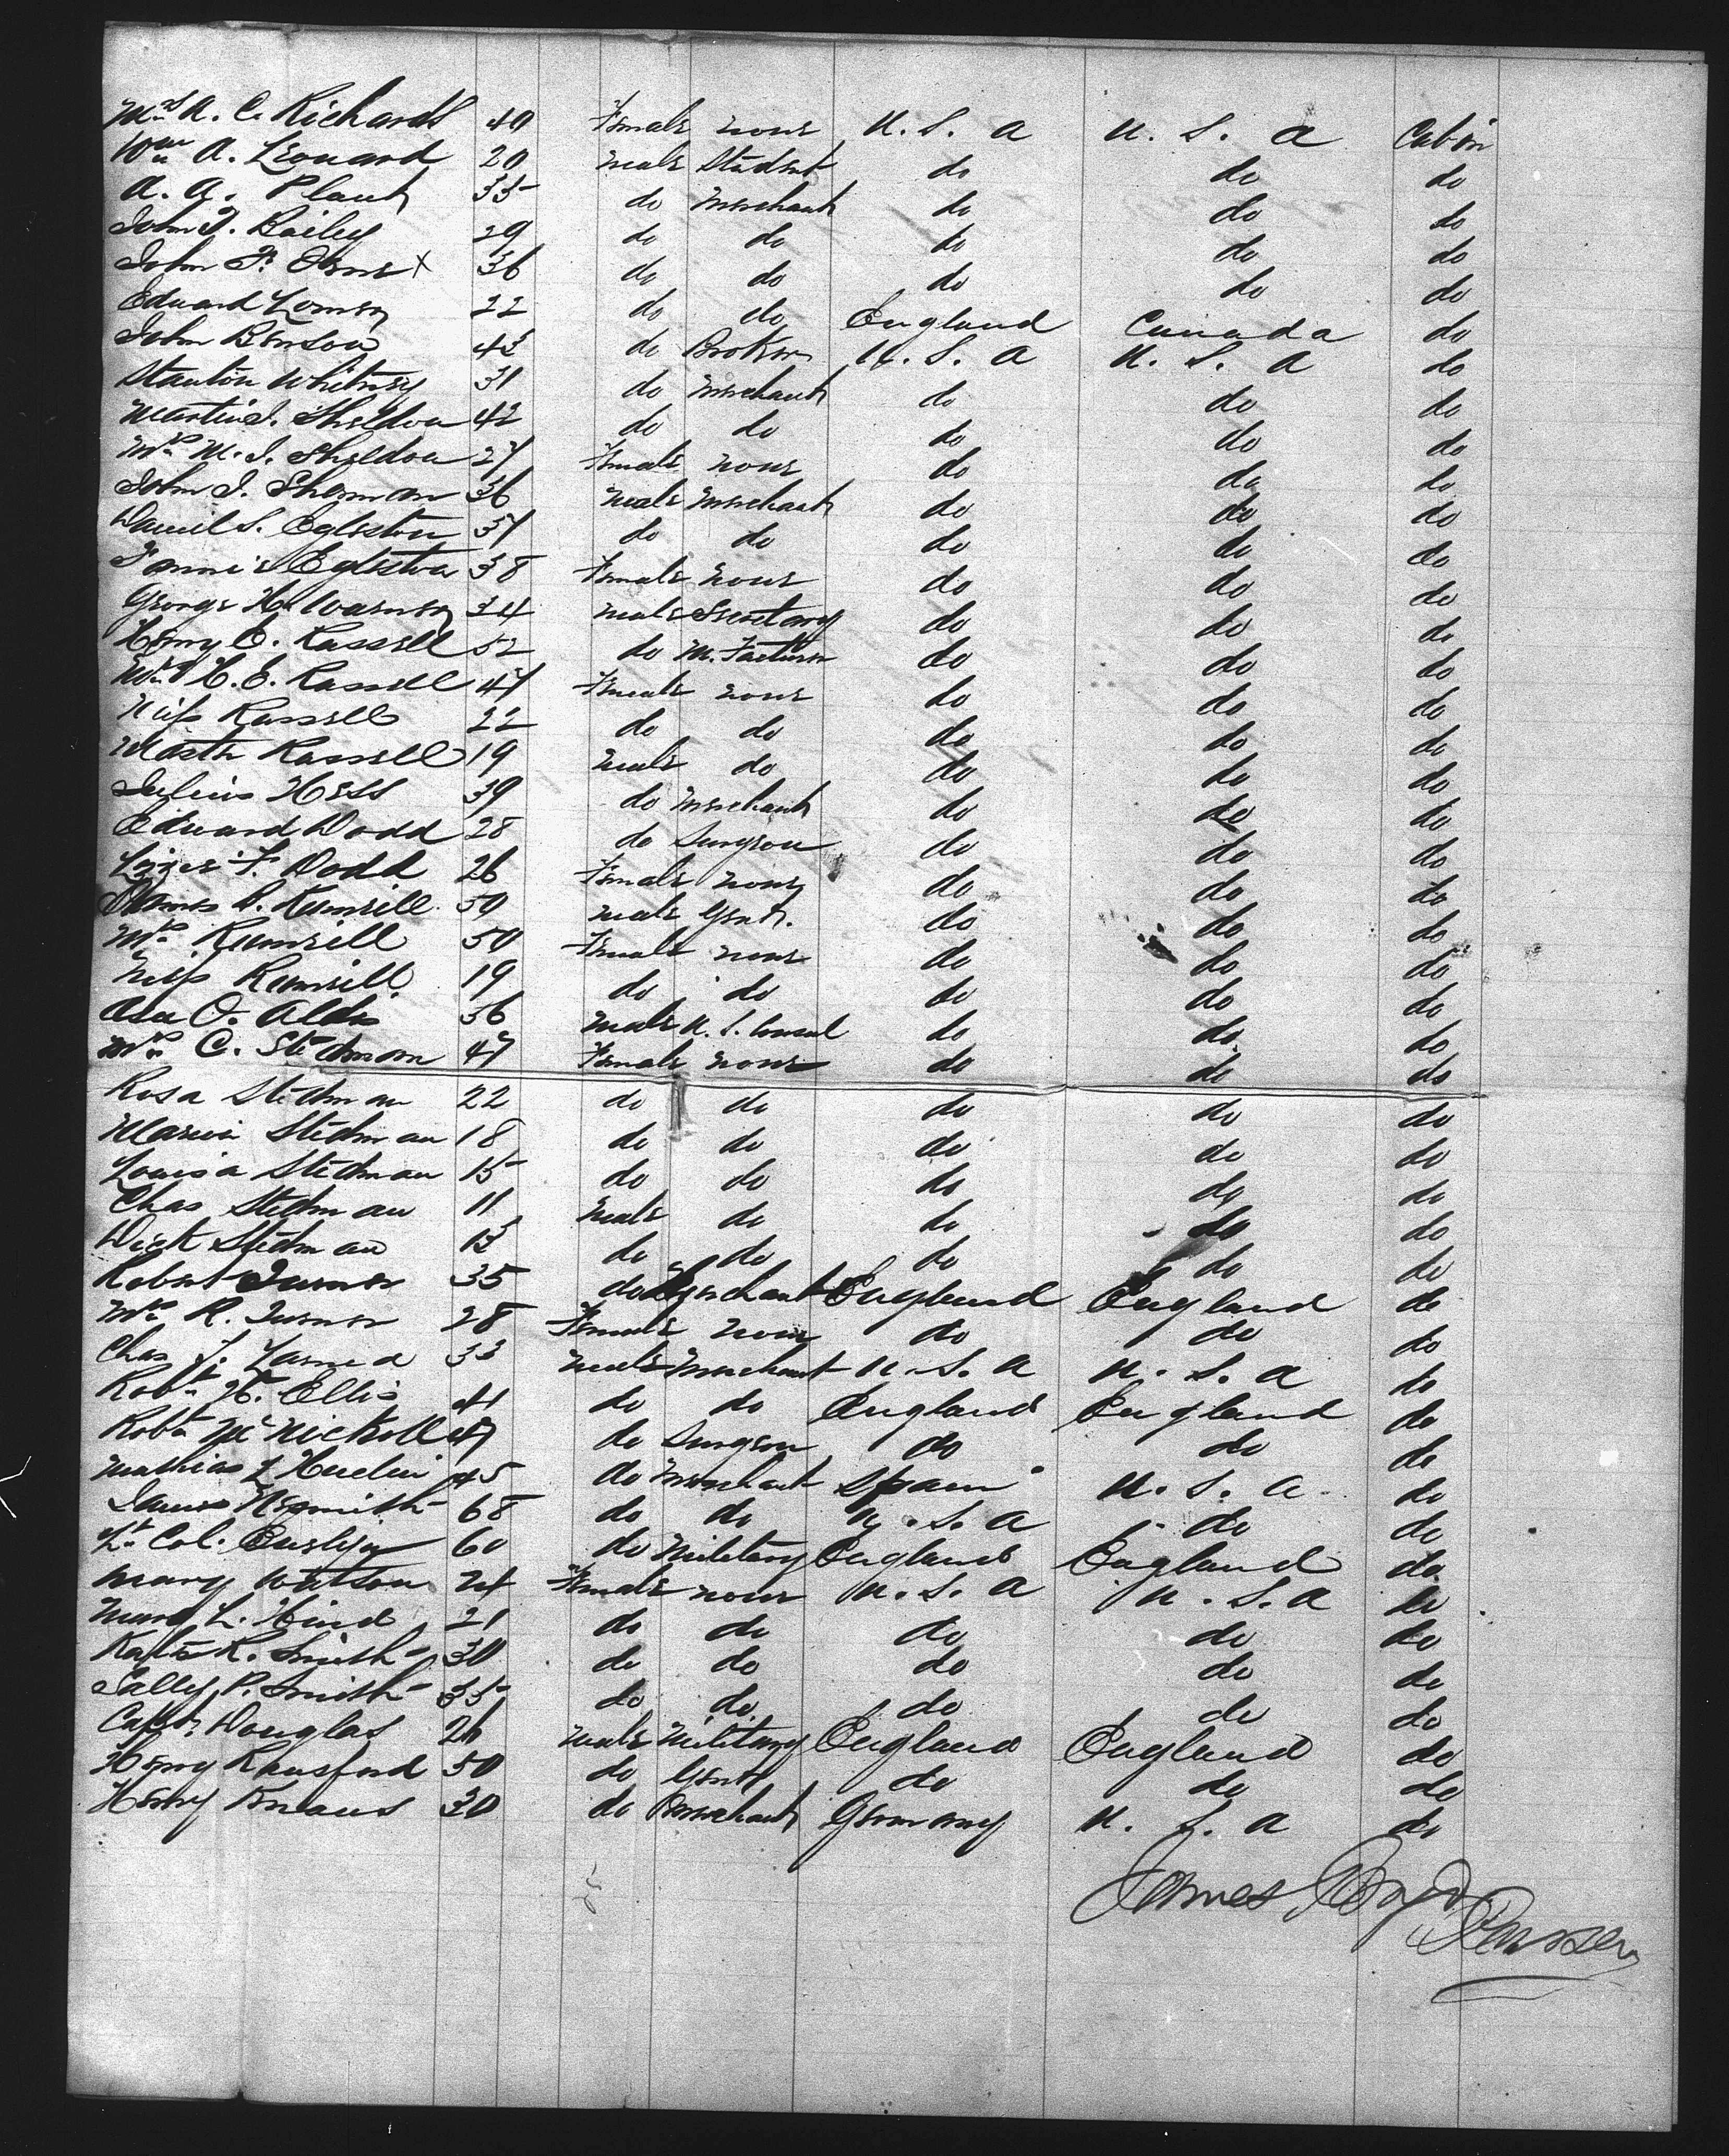 Mrs A. C. Richards 40 Female none U. S. A U. S. A Cabin
Wm A. Leonard 20 male Student do do do
A. A. Plant 35 do Merchant do do do
John T. Bailey 29 do do do do do
John F. 36 do do do do do
Edward 22 do do England Canada do
John Benson 43 do Broker U. S. A U. S. A do
Stanton Whitney 31 do merchant do do do
Martin J. Sheldon 42 do do do do do
Mrs M. J. Sheldon 27 Female none do do do
John J. Sherman 36 male merchant do do do
Daniel S. Egleston 37 do do do do do
Fannie Egleston 38 Female none do do do
George H. Warner 34 male Secretary do do do
Henry E. Russell 52 do M. Facturer do do do
Mrs H. E. Russell 47 Female none do do do
Miss Russell 22 do do do do do
Mastr Russell 19 male do do do do
Julius Hess 39 do merchant do do do
Edward Dodd 28 do Surgeon do do do
Lizzie F. Dodd 26 Female none do do do
Rumrill 50 male Gent. do do do
Mrs Rumrill 50 Female none do do do
Miss Rumrill 19 do do do do do
Asa O. Aldis 56 male U. S. Consul do do do
Mrs C. Stedman 47 Female none do do do
Rosa Stedman 22 do do do do do
Maria Stedman 18 do do do do do
Louisa Stedman 15 do do do do do
Chas Stedman 11 male do do do do
Dick Stedman 13 do do do do do
Robert Turner 35 do Merchant England England do
Mrs R. Turner 28 Female none do do do
Chas J. Larned 33 male merchant U. S. A U. S. A do
Robt H. Ellis 41 do do England England do
Robt McNicholl 47 do Surgeon do do do
Mathias L 45 do merchant Spain U. S. A. do
James 68 do do U. S. A do do
Lt Col. 60 do Military England England do
Mary Watson 24 Female none U. S. A U. S. A do
Mary L. Hind 21 do do do do do
Kate R. Smith 30 do do do do do
Sally P. Smith 35 do do do do do
Capt. Douglas 26 male Military England England do
Henry Ransford 50 do Gent do do do
Henry Knaus 30 do Merchant Germany U. S. A do
James Boyd
Purser